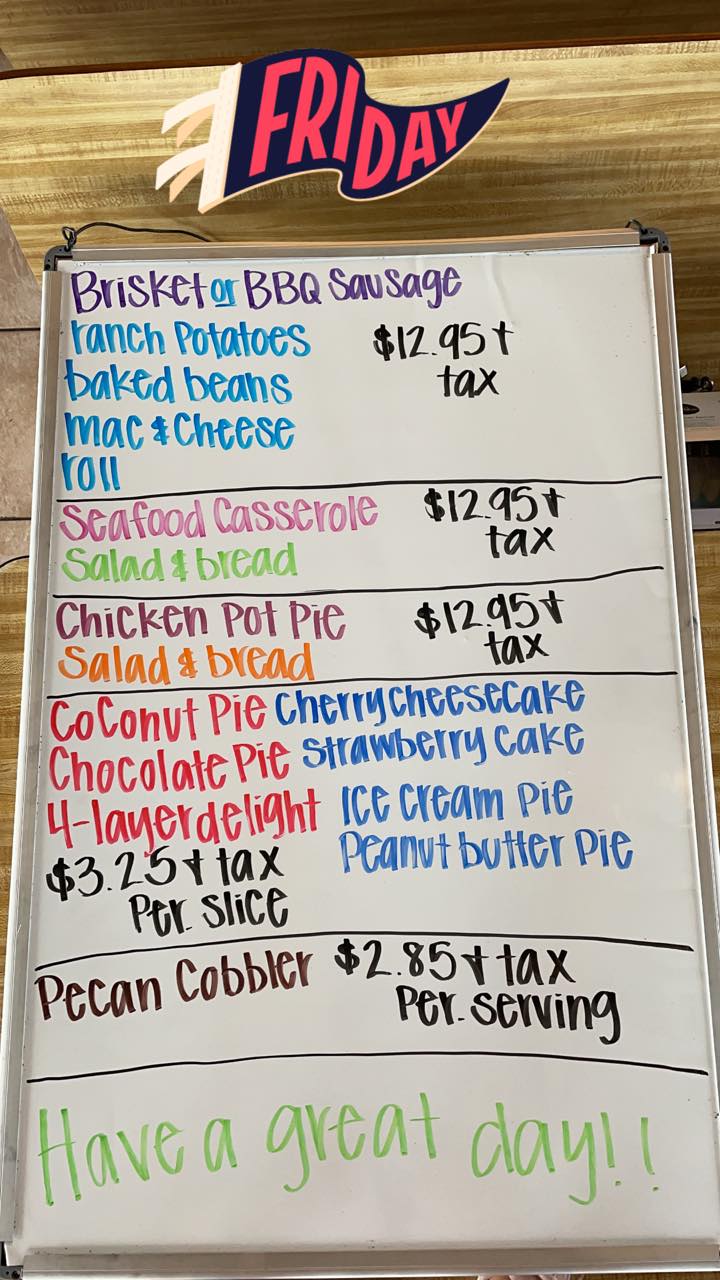 FRIDAY
Brisket or BBQ Sausage
ranch Potatoes $12.95 +
baked beans tax
mac & Cheese
roll
Seafood Casserole $12.95 +
Salad & bread tax
Chicken Pot Pie $12.95 +
Salad & bread tax
Coconut Pie Cherry cheesecake
Chocolate Pie Strawberry Cake
4-layer delight Ice Cream Pie
$3.25 + tax Peanut butter Pie
Per. slice
Pecan Cobbler $2.85 + tax
Per. serving
Have a great day!!